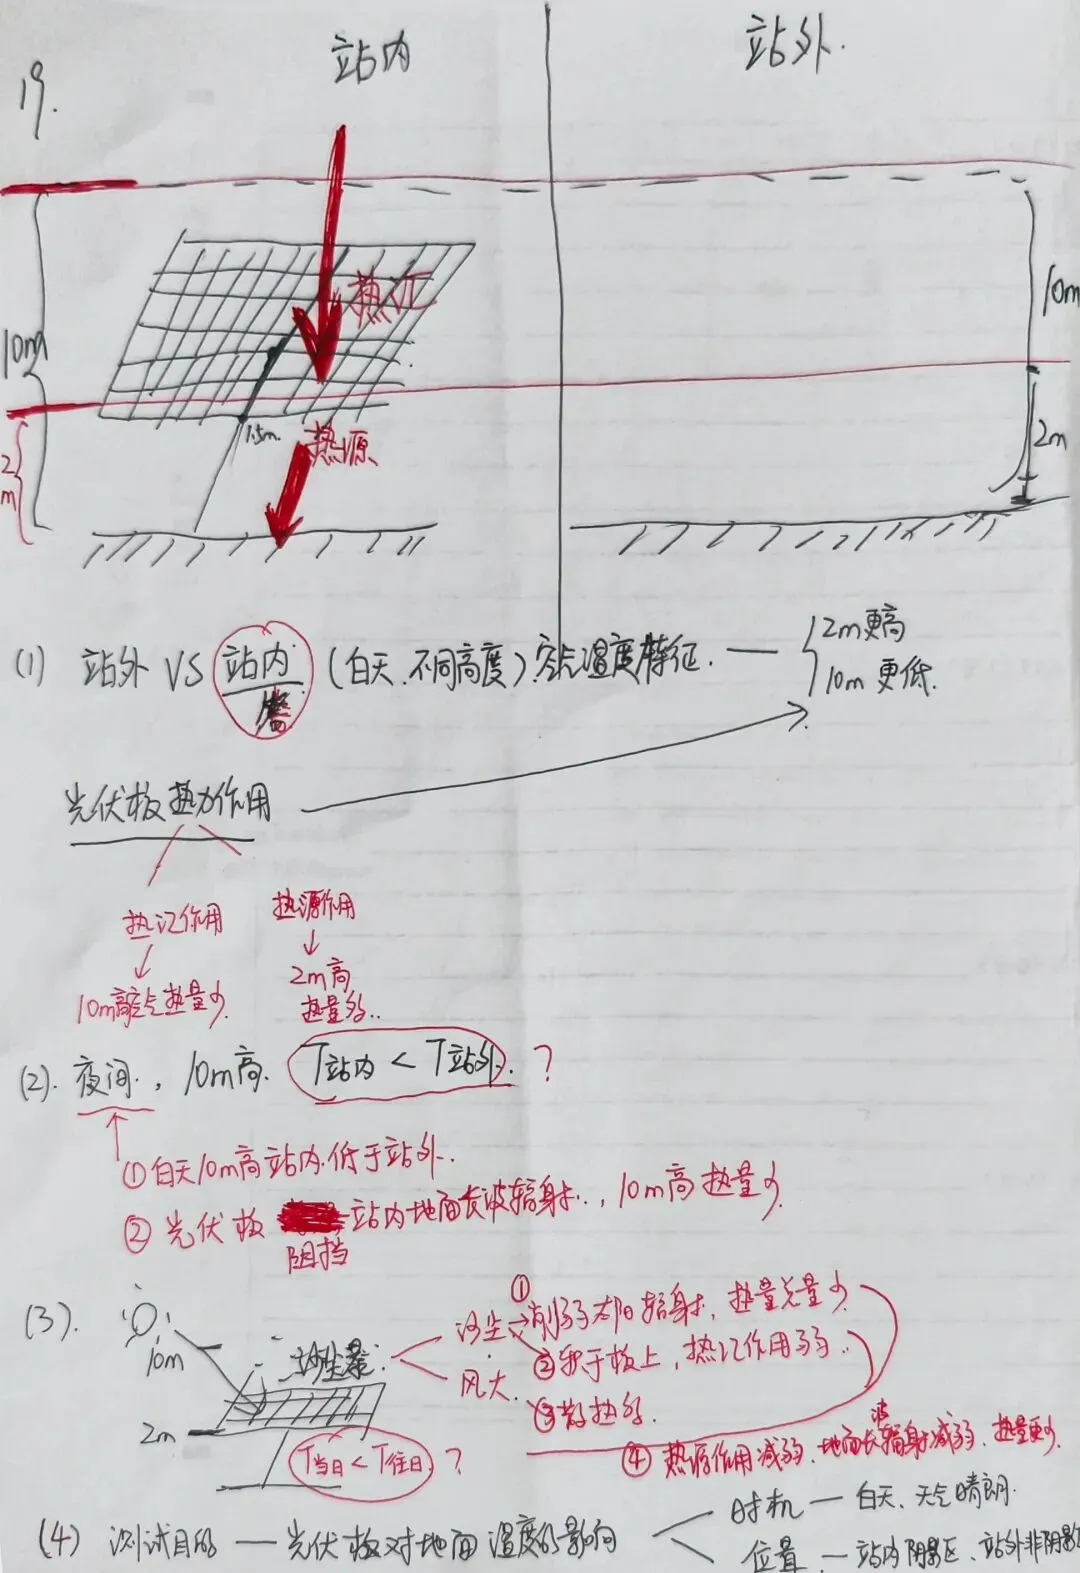 站内
站外.
19.
热汇
10m
10m
1.5m
热源
2m
2m
(1) 站外 VS 站内 (白天.不同高度)空气温度特征. — 2m更高
10m 更低.
光伏板热力作用
热汇作用
热源作用
10m高空气热量少.
2m高
热量多..
(2). 夜间., 10m高. T站内 < T站外. ?
①白天10m高站内.低于站外.
② 光伏板 站内地面长波辐射.., 10m高热量少
阻挡
(3).
10m
沙尘暴.
沙尘
①削弱太阳辐射, 热量总量少
②积于板上, 热汇作用弱..
风大.
③散热多.
2m
T当日 < T往日. ?
④ 热源作用减弱.地面长波辐射减弱. 热量更少.
(4) 测试目的 — 光伏板对地面温度的影响
时机 — 白天、天气晴朗.
位置 — 站内阴影区、站外非阴影区